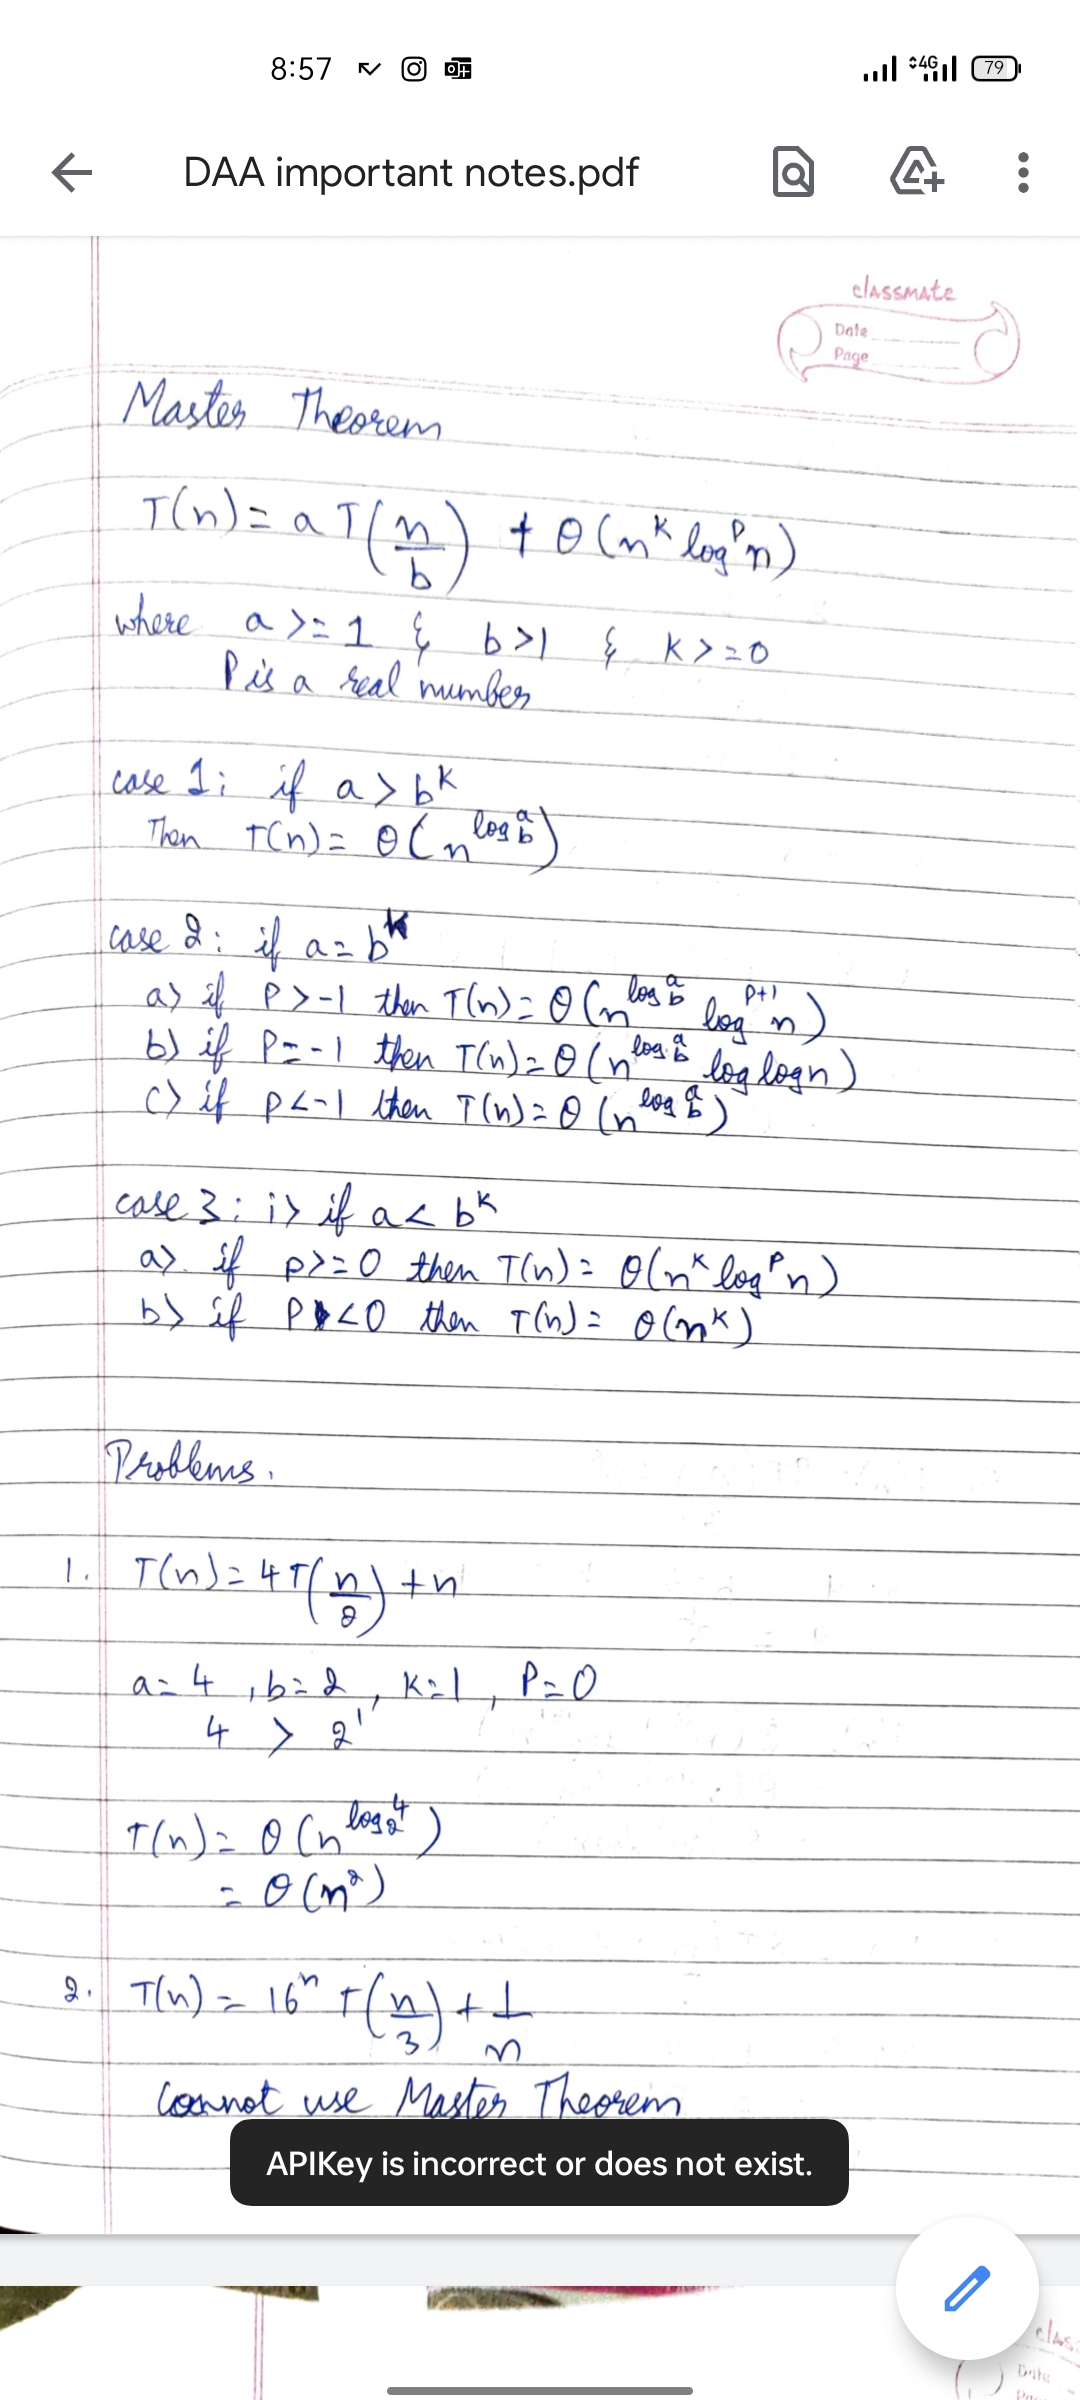 8:57
4G
79
DAA important notes.pdf
classmate
Date
Page
Master Theorem
T(n) = a T(n/b) + θ(n^k log^p n)
where a >= 1 & b > 1 & K >= 0
P is a real number
case 1: if a > b^k
Then T(n) = θ(n^log_b^a)
case 2: if a = b^k
a) if P > -1 then T(n) = θ(n^log_b^a log^p+1 n)
b) if P = -1 then T(n) = θ(n^log_b^a log log n)
c) if p < -1 then T(n) = θ(n^log_b^a)
case 3: i) if a < b^k
a) if p >= 0 then T(n) = θ(n^k log^p n)
b) if P < 0 then T(n) = θ(n^k)
Problems.
1. T(n) = 4T(n/2) + n
a = 4, b = 2, K = 1, P = 0
4 > 2^1
T(n) = θ(n^log_2^4)
= θ(n^2)
2. T(n) = 16^n T(n/3) + 1/n
Cannot use Master Theorem
APIKey is incorrect or does not exist.
class
Date